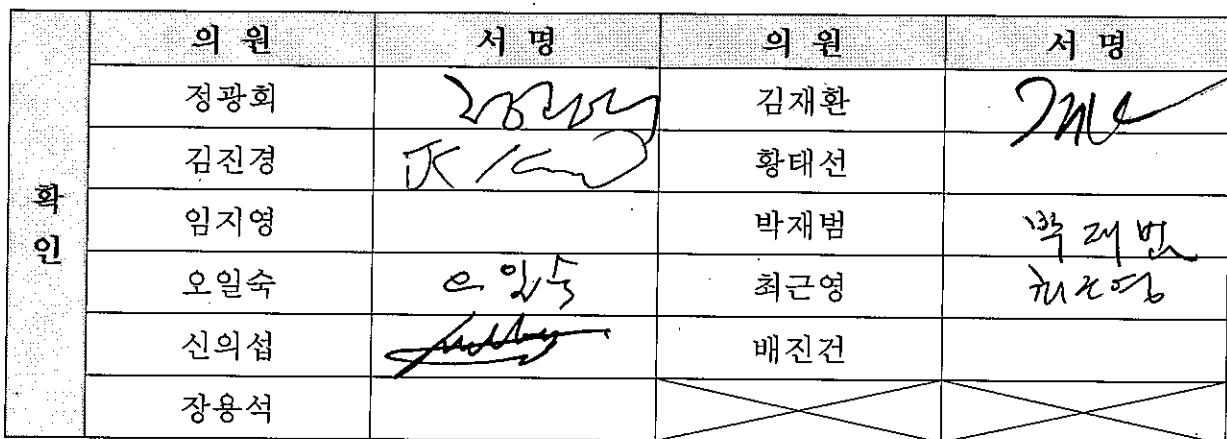 의 원 서 명 의 원 서 명
정광회 김재환
김진경 JK Kim 황태선
확 인
임지영 박재범 박재범
오일숙 오일숙 최근영 최근영
신의섭 배진건
장용석